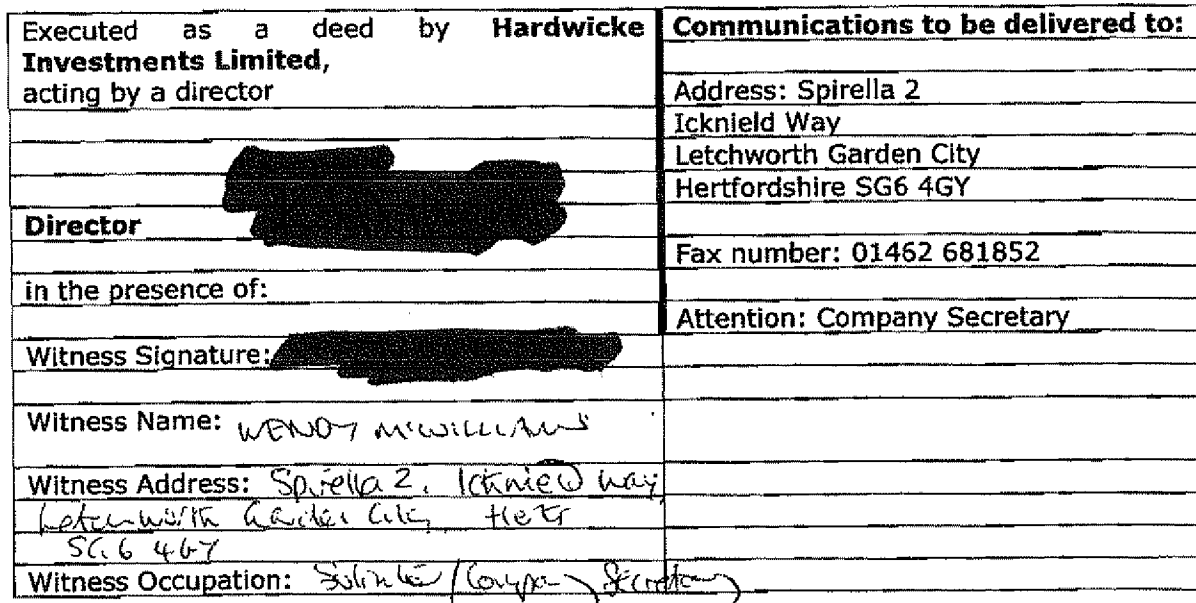 Executed as a deed by Hardwicke
Investments Limited,
acting by a director
Director
in the presence of:
Witness Signature:
Witness Name: WENDY McWILLIAMS
Witness Address: Spirella 2, Icknield Way,
Letchworth Garden City, Herts
SG6 4GY
Witness Occupation: Solicitor / Company Secretary
Communications to be delivered to:
Address: Spirella 2
Icknield Way
Letchworth Garden City
Hertfordshire SG6 4GY
Fax number: 01462 681852
Attention: Company Secretary